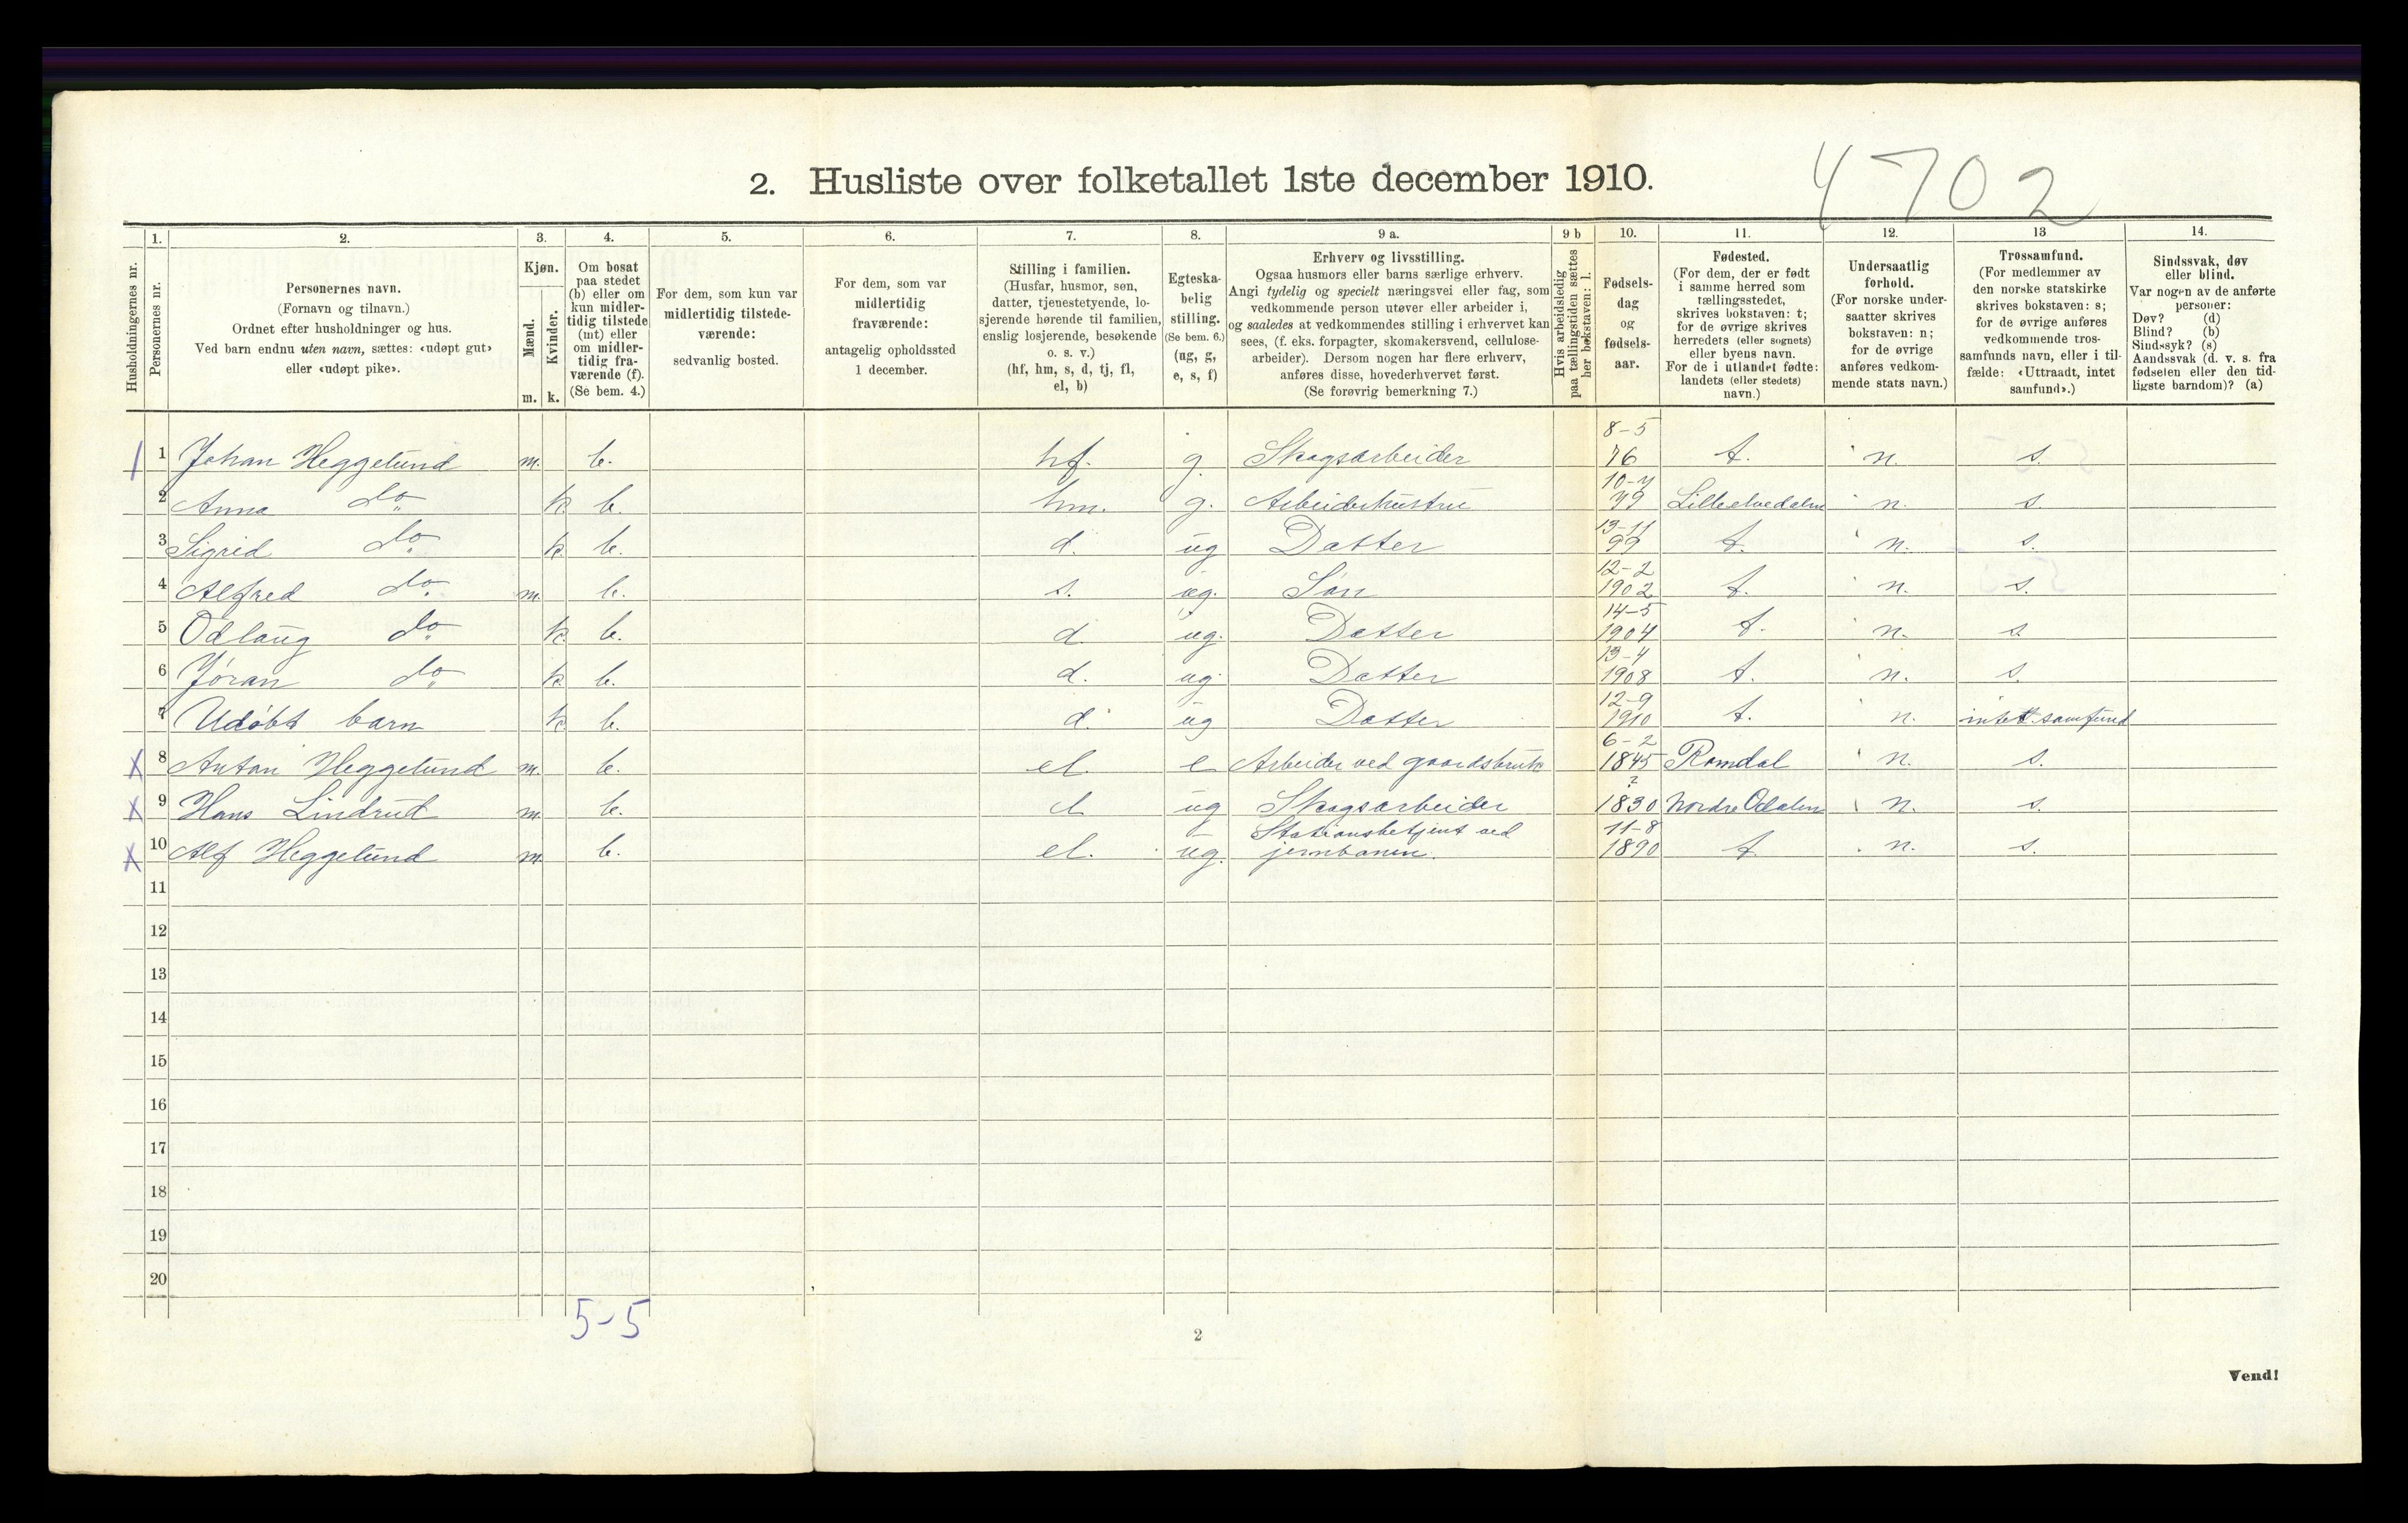 4702
2. Husliste over folketallet 1ste december 1910.
Husholdningernes nr.
1. Personernes nr.
2. Personernes navn. (Fornavn og tilnavn.) Ordnet efter husholdninger og hus. Ved barn endnu uten navn, sættes: «udøpt gut» eller «udøpt pike».
3. Kjøn. Mænd. m. Kvinder. k.
4. Om bosat paa stedet (b) eller om kun midlertidig tilstede (mt) eller om midlertidig fraværende (f). (Se bem. 4.)
5. For dem, som kun var midlertidig tilstedeværende: sedvanlig bosted.
6. For dem, som var midlertidig fraværende: antagelig opholdssted 1 december.
7. Stilling i familien. (Husfar, husmor, søn, datter, tjenestetyende, losjerende hørende til familien, enslig losjerende, besøkende o. s. v.) (hf, hm, s, d, tj, fl, el, b)
8. Egteskabelig stilling. (Se bem. 6.) (ug, g, e, s, f)
9 a. Erhverv og livsstilling. Ogsaa husmors eller barns særlige erhverv. Angi tydelig og specielt næringsvei eller fag, som vedkommende person utøver eller arbeider i, og saaledes at vedkommendes stilling i erhvervet kan sees, (f. eks. forpagter, skomakersvend, cellulosearbeider). Dersom nogen har flere erhverv, anføres disse, hovederhvervet først. (Se forøvrig bemerkning 7.)
9 b Hvis arbeidsledig paa tællingstiden sættes her bokstaven: l.
10. Fødselsdag og fødselsaar.
11. Fødested. (For dem, der er født i samme herred som tællingsstedet, skrives bokstaven: t; for de øvrige skrives herredets (eller sognets) eller byens navn. For de i utlandet fødte: landets (eller stedets) navn.)
12. Undersaatlig forhold. (For norske undersaatter skrives bokstaven: n; for de øvrige anføres vedkommende stats navn.)
13 Trossamfund. (For medlemmer av den norske statskirke skrives bokstaven: s; for de øvrige anføres vedkommende trossamfunds navn, eller i tilfælde: «Uttraadt, intet samfund».)
14. Sindssvak, døv eller blind. Var nogen av de anførte personer: Døv? (d) Blind? (b) Sindssyk? (s) Aandssvak (d. v. s. fra fødselen eller den tidligste barndom)? (a)
1 Johan Heggelund m. b. hf. g. Skogsarbeider 8-5 76 t. n. s.
2 Anna do k. b. hm. g. Arbeiderhustru 79 Lilleelvedalen n. s.
3 Sigrid do k. b. d. ug Datter 13-11 99 t. n. s.
4 Alfred do m. b. s. ug. Søn 12-2 1902 t. n. s.
5 Odlaug do k. b. d. ug. Datter 14-5 1904 t. n. s
6 Jøran do k. b. d. ug. Datter 13-4 1908 t. n. s.
7 Udøbt barn k. b. d. ug Datter 12-9 1910 t. n. intet samfund
X 8 Anton Heggelund m. b. el. e Arbeider ved gaardsbruk 6-2 1845 Romdal n. s.
X 9 Hans Lindrud m. b. el ug Skogsarbeider ? 1830 Nordre Odalen n. s.
X 10 Alf Heggelund m. b. el. ug. Stationsbetjent ved jernbanen. 11-8 1890 t. n. s.
11
12
13
14
15
16
17
18
19
20
5-5
2
Vend!